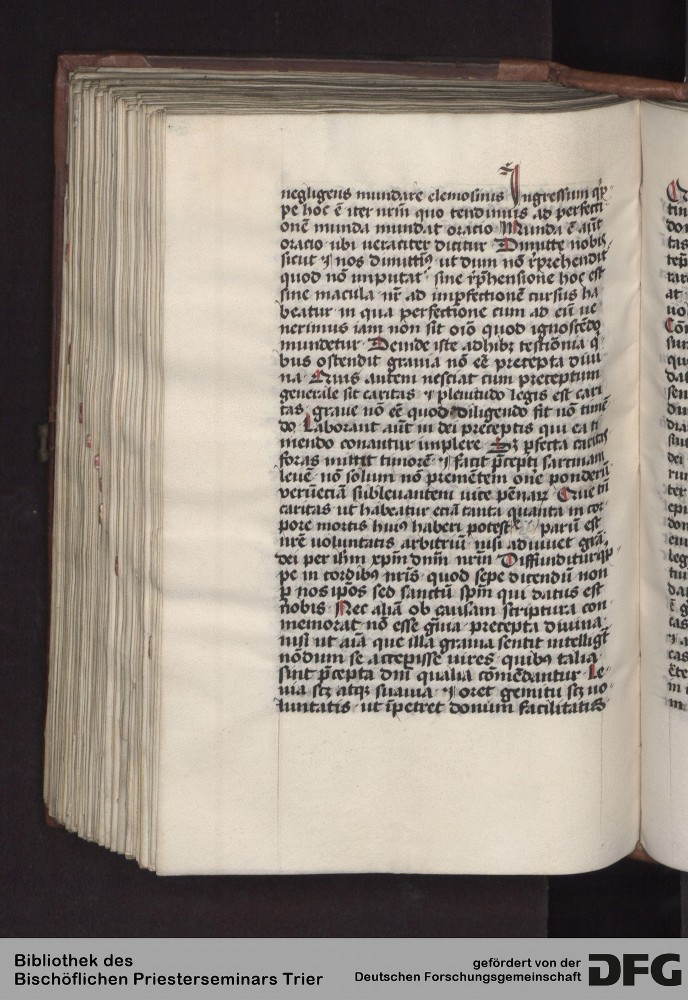 negligens mundare elemosinis Ingressum qͥp
pe hoc ē iter nr̄m quo tendimus ad perfecti
onē munda mundat oracio Munda ē aūt
oracio ubi ueraciter dicitur Dimitte nobis
sicut ⁊ nos dimittim⁹ ut dum nō rꝓrehendit᷑
quod nō imputat᷑ sine rp̄hensione hoc est
sine macula nr̄ ad imꝑfectionē cursus ha
beatur in qua perfectione cum ad eū ue
nerimus iam non sit oīo quod ignoscēdo
mundetur Deinde iste adhibꝫ testiōnia qͥ
bus ostendit grauia nō eē precepta diui
na Quis autem nesciat cum preceptum
generale sit caritas ⁊ plenitudo legis est cari
tas graue nō eē quod diligendo fit nō timē
do Laborant aūt in dei preceptis qui ea ti
mendo conantur implere Sꝫ ꝑfecta caritas
foras mittit timorē ⁊ facit p̄cepti sarcinam
leuē nō solum nō premētem one ponderū
uerūeciā subleuantem uice pēnarꝝ Que tn̄
caritas ut habeatur eciā tanta quanta in cor
pore mortis hui⁹ haberi potest parū est
nr̄e uoluntatis arbitriū nisi adiuuet grā
dei per ihm̄ xpm̄ dnm̄ nr̄m Diffunditur qͥp
pe in cordib⁹ nr̄is quod sepe dicendū non
ꝑ nos ip̄os sed sanctū spm̄ qui datus est
nobis Nec aliā ob causam scriptura con
memorat nō esse gͣuia precepta diuina
nisi ut aīa que illa grauia sentit intelligat
nōdum se accepisse uires quib⁹ talia
sint p̄cepta dnī qualia cōmēdantur Le
uia scꝫ atqꝫ suauia ⁊ oret gemitu scꝫ uo
luntatis ut īpetret donum facilitatis
Bibliothek des
Bischöflichen Priesterseminars Trier
gefördert von der
Deutschen Forschungsgemeinschaft
DFG